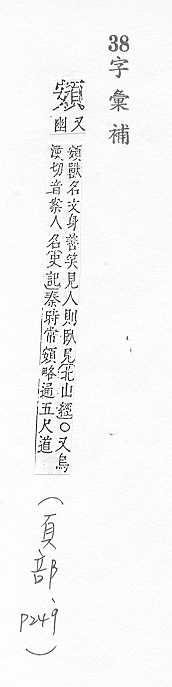 38字彙補
頞
又幽
頞獸名文身善笑見人則臥見北山經○又烏
漢切音案人名史記秦時常頞略通五尺道
(頁部、P249)